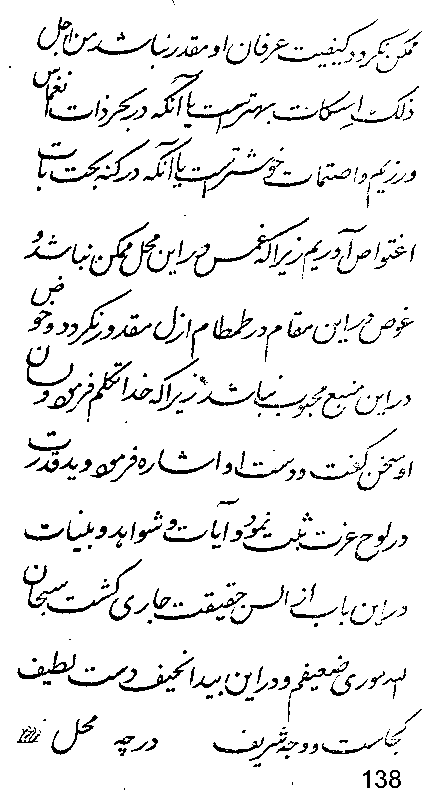 ممکن نگردد و کیفیت عرفان او مقدر نباشد من اجل
ذلک اسکات بهتر است یا آنکه در بحر ذات انغماس
ورزیم و اصتمات خوشتر است یا آنکه در کنه بحت بات
اغتواص آوریم زیرا که غمس در این محل ممکن نباشد و
غوص در این مقام در طمطام ازل مقدور نگردد و خوض
در این منبع محبوب نباشد زیرا که خدا تکلم فرمود و لسان
او سخن گفت و دست او اشاره فرمود و ید قدرت
در لوح عزت ثبت نمود و آیات و شواهد و بینات
در این باب از السن حقیقت جاری گشت سبحان
الله موری ضعیفم و در این بیدا نحیف دست لطیف
کجاست و وجه شریف در چه محل
138